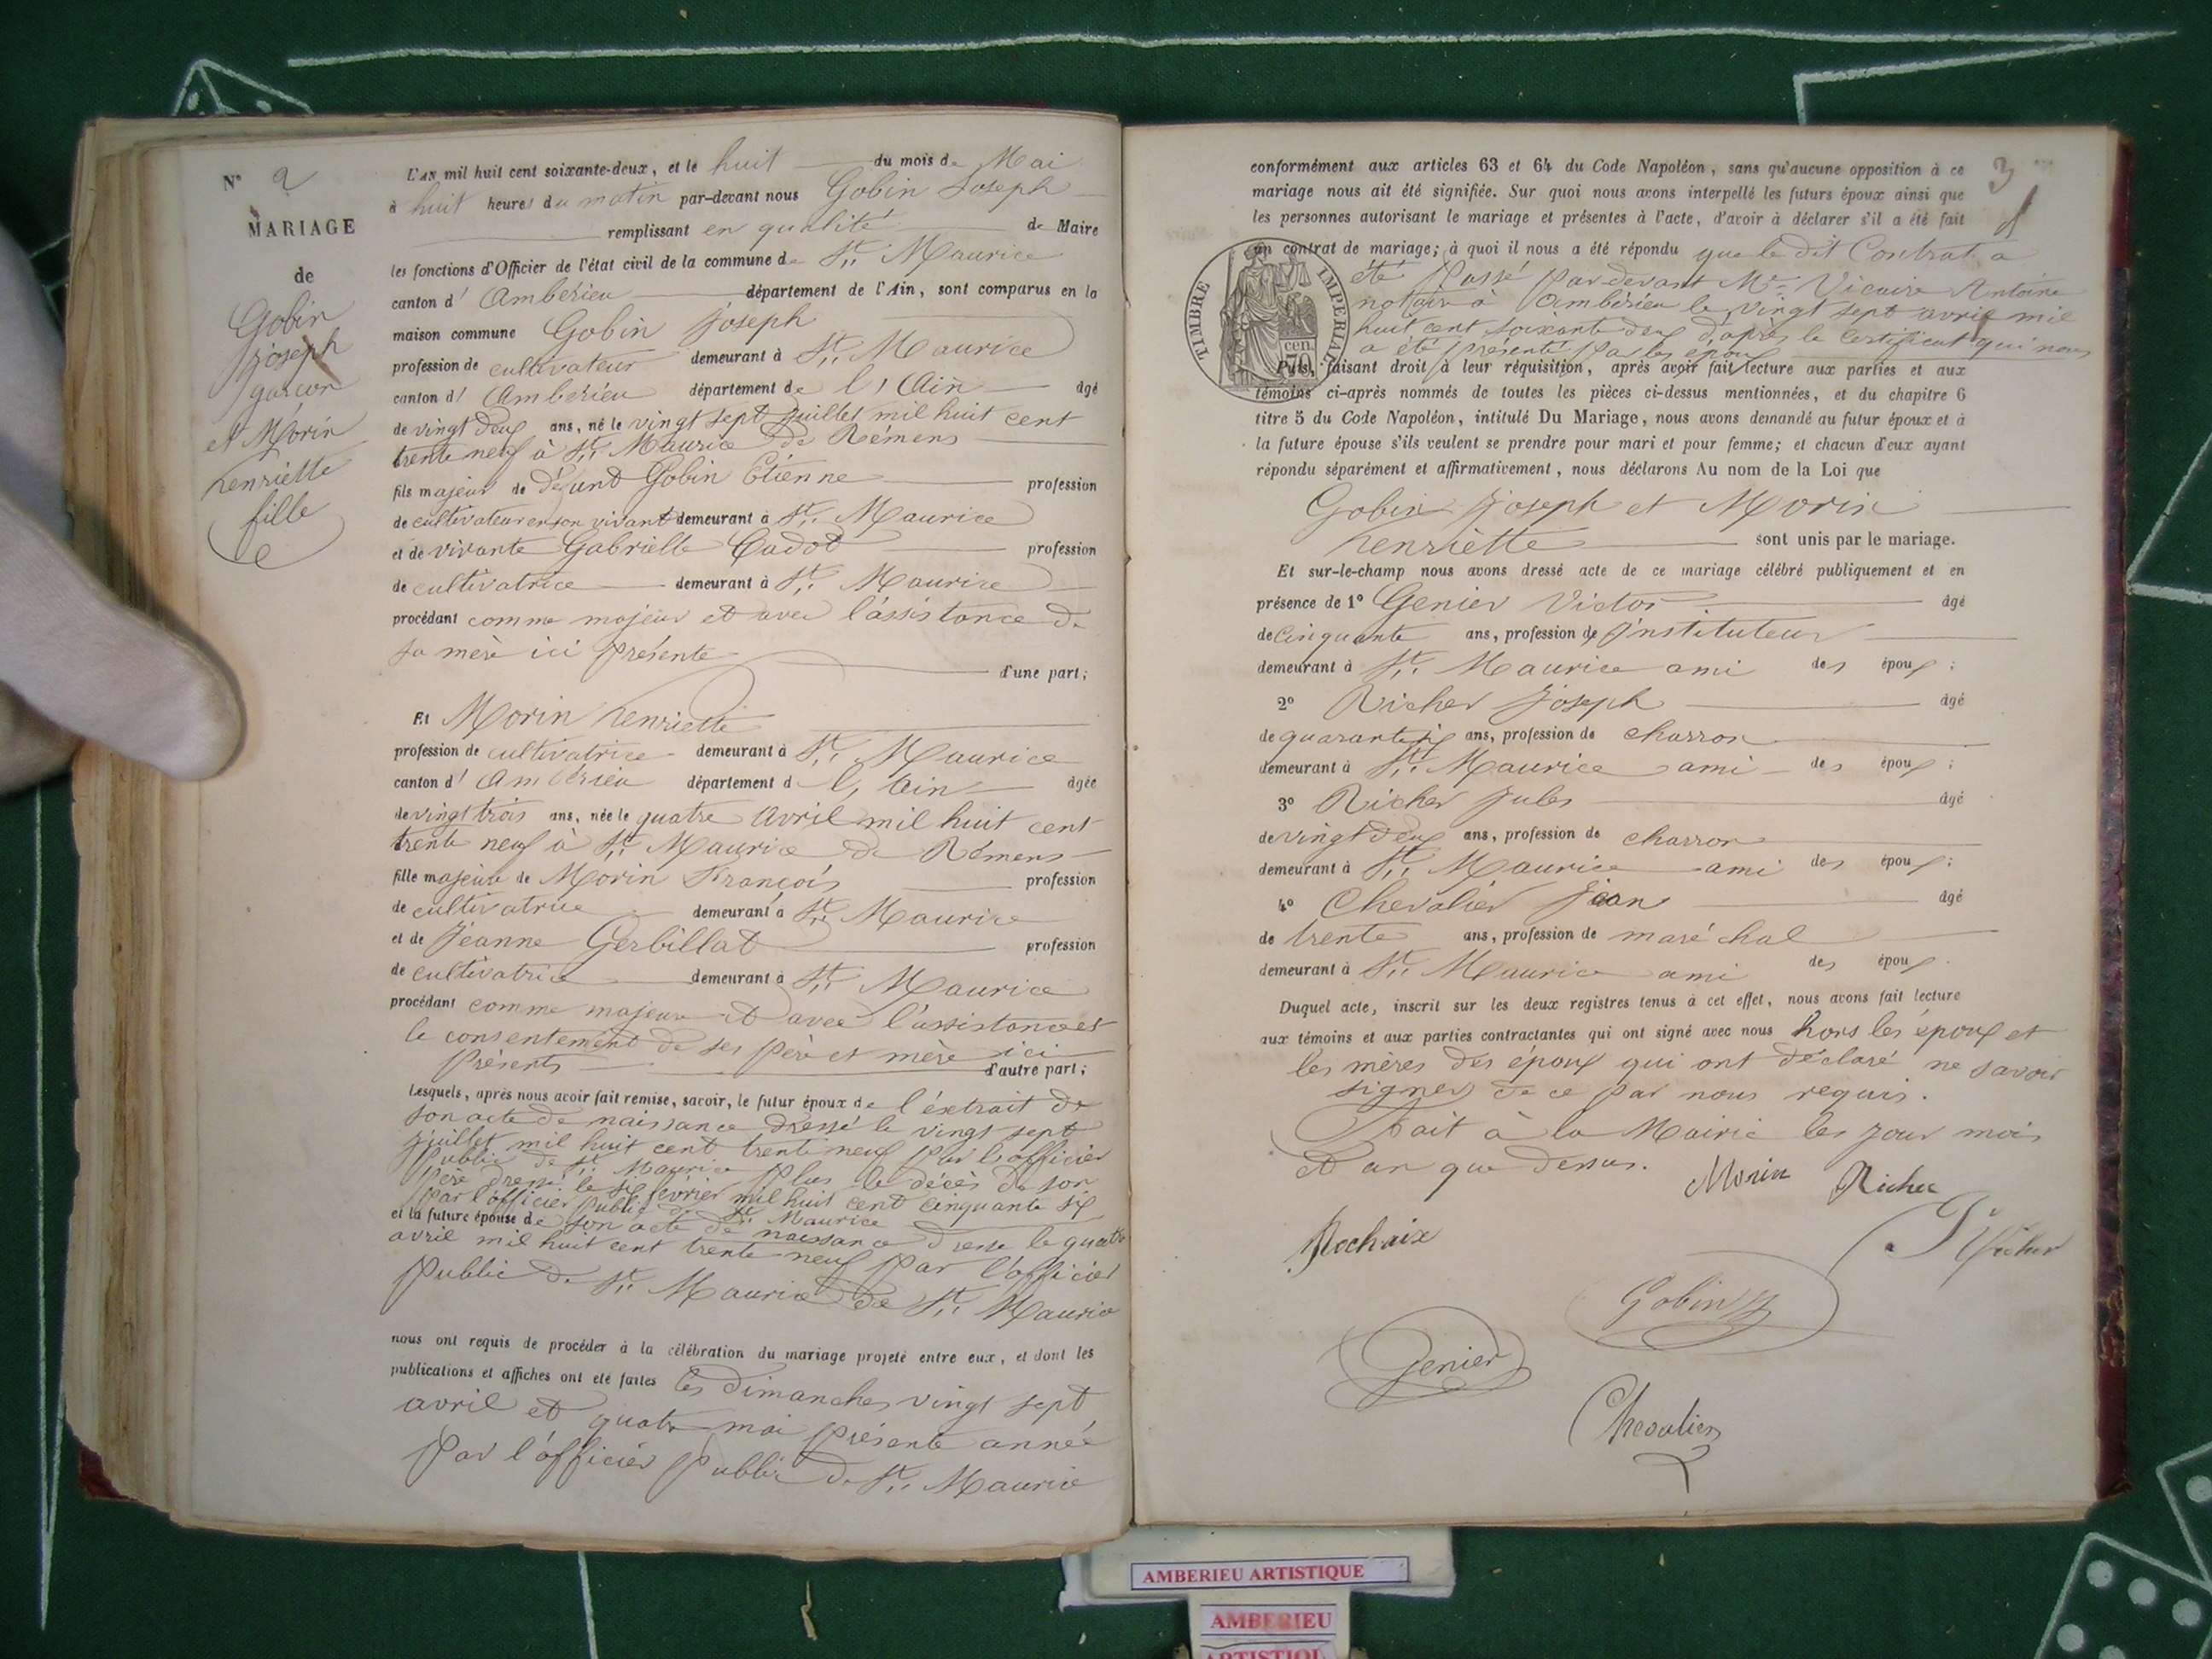 N° 2
MARIAGE
de
Gobin
Joseph
garçon
et Morin
henriette
fille
L'AN mil huit cent soixante-deux, et le huit du mois de Mai
à huit heures du matin par-devant nous Gobin Joseph
remplissant en qualité de Maire
les fonctions d'Officier de l'état civil de la commune de St. Maurice
canton d' Ambérieu département de l'Ain, sont comparus en la
maison commune Gobin Joseph
profession de cultivateur demeurant à St. Maurice
canton d' Ambérieu département de l'Ain âgé
de vingt deux ans, né le vingt sept Juillet mil huit cent
trente neuf à St. Maurice de Rémens
fils majeur de défunt Gobin Etienne profession
de cultivateur en son vivant demeurant à St. Maurice
et de vivante Gabrielle Cadot profession
de cultivatrice demeurant à St. Maurice
procédant comme majeur et avec l'assistance de
sa mère ici présente
d'une part;
Et Morin henriette
profession de cultivatrice demeurant à St. Maurice
canton d' Ambérieu département de l'Ain âgée
de vingt trois ans, née le quatre Avril mil huit cent
trente neuf à St. Maurice de Rémens
fille majeure de Morin François profession
de cultivatrice demeurant à St. Maurice
et de Jeanne Gerbillat profession
de cultivatrice demeurant à St. Maurice
procédant comme majeure et avec l'assistance et
le consentement de ses père et mère ici
présents d'autre part;
Lesquels, après nous avoir fait remise, savoir, le futur époux de l'éxtrait de
son acte de naissance dressé le vingt sept
juillet mil huit cent trente neuf par l'officier
public de St. Maurice plus le décès de son
père dressé le six février mil huit cent cinquante six
par l'officier public de St. Maurice
et la future épouse de son acte de naissance dressé le quatre
avril mil huit cent trente neuf par l'officier
public de St. Maurice de St. Maurice
nous ont requis de procéder à la célébration du mariage projeté entre eux, et dont les
publications et affiches ont été faites les dimanches vingt sept
avril et quatre mai présente année
par l'officier public de St. Maurice
3
conformément aux articles 63 et 64 du Code Napoléon, sans qu'aucune opposition à ce
mariage nous ait été signifiée. Sur quoi nous avons interpellé les futurs époux ainsi que
les personnes autorisant le mariage et présentes à l'acte, d'avoir à déclarer s'il a été fait
un contrat de mariage; à quoi il nous a été répondu que le dit Contrat a
été passé par devant Me. Vicaire Antoine
notaire à Ambérieu le vingt sept avril mil
huit cent soixante deux d'après le certificat qui nous
a été présenté par les époux
TIMBRE IMPÉRIAL
70 cen
Puis, faisant droit à leur réquisition, après avoir fait lecture aux parties et aux
témoins ci-après nommés de toutes les pièces ci-dessus mentionnées, et du chapitre 6
titre 5 du Code Napoléon, intitulé Du Mariage, nous avons demandé au futur époux et à
la future épouse s'ils veulent se prendre pour mari et pour femme; et chacun d'eux ayant
répondu séparément et affirmativement, nous déclarons Au nom de la Loi que
Gobin Joseph et Morin
henriette sont unis par le mariage.
Et sur-le-champ nous avons dressé acte de ce mariage célébré publiquement et en
présence de 1° Genier Victor âgé
de Cinquante ans, profession de Instituteur
demeurant à St. Maurice ami des époux;
2° Richer Joseph âgé
de quarante six ans, profession de charron
demeurant à St. Maurice ami des époux;
3° Richer Jules âgé
de vingt deux ans, profession de charron
demeurant à St. Maurice ami des époux;
4° Chevalier Jean âgé
de trente ans, profession de maréchal
demeurant à St. Maurice ami des époux.
Duquel acte, inscrit sur les deux registres tenus à cet effet, nous avons fait lecture
aux témoins et aux parties contractantes qui ont signé avec nous hors les époux et
les mères des époux qui ont déclaré ne savoir
signer de ce par nous requis.
Fait à la Mairie les jour mois
et an que dessus.
Morin Richer
Rochaix
Richer
Gobin
Genier
Chevalier
AMBERIEU ARTISTIQUE
AMBERIEU
ARTISTIQUE